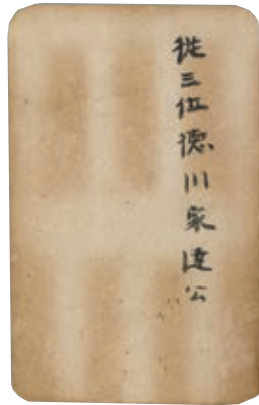 従三位徳川家達公